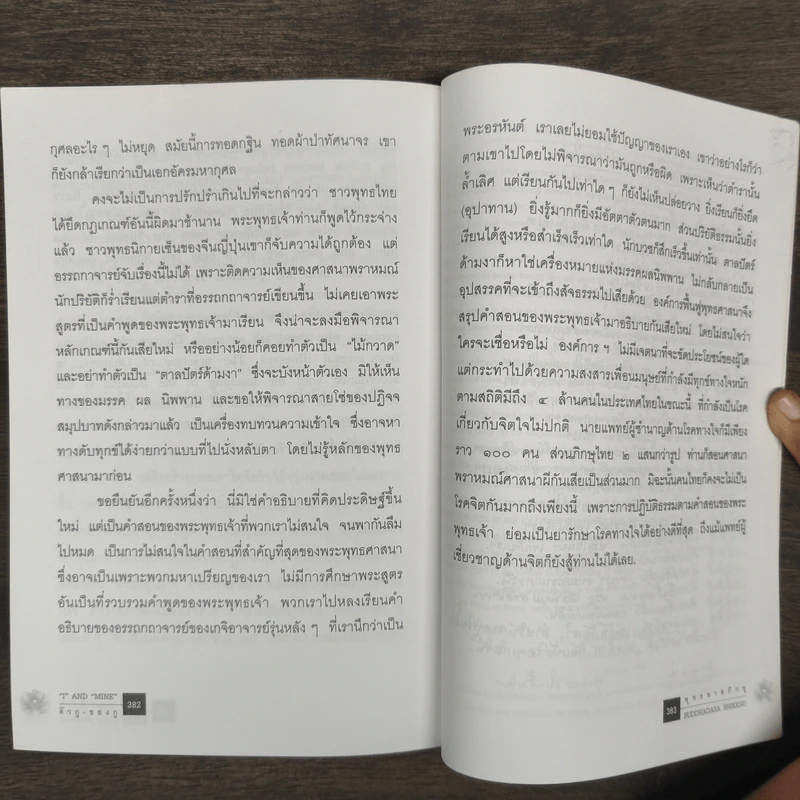 กุศลอะไร ๆ ไม่หยุด สมัยนี้การทอดกฐิน ทอดผ้าป่าทัศนาจร เขา
ก็ยังกล้าเรียกว่าเป็นเอกอัครมหากุศล
คงจะไม่เป็นการปรักปรำเกินไปที่จะกล่าวว่า ชาวพุทธไทย
ได้ยึดกฎเกณฑ์อันนี้ผิดมาช้านาน พระพุทธเจ้าท่านก็พูดไว้กระจ่าง
แล้ว ชาวพุทธนิกายเซ็นของจีนญี่ปุ่นเขาก็จับความได้ถูกต้อง แต่
อรรถกาจารย์จับเรื่องนี้ไม่ได้ เพราะติดความเห็นของศาสนาพราหมณ์
นักปริยัติก็ร่ำเรียนแต่ตำราที่อรรถกถาจารย์เขียนขึ้น ไม่เคยเอาพระ
สูตรที่เป็นคำพูดของพระพุทธเจ้ามาเรียน จึงน่าจะลงมือพิจารณา
หลักเกณฑ์นี้กันเสียใหม่ หรืออย่างน้อยก็คอยทำตัวเป็น "ไม้กวาด"
และอย่าทำตัวเป็น "ตาลปัตร์ด้ามงา" ซึ่งจะบังหน้าตัวเอง มิให้เห็น
ทางของมรรค ผล นิพพาน และขอให้พิจารณาสายโซ่ของปฏิจจ
สมุปบาทดังกล่าวมาแล้ว เป็นเครื่องทบทวนความเข้าใจ ซึ่งอาจหา
ทางดับทุกข์ได้ง่ายกว่าแบบที่ไปนั่งหลับตา โดยไม่รู้หลักของพุทธ
ศาสนามาก่อน
ขอยืนยันอีกครั้งหนึ่งว่า นี่มิใช่คำอธิบายที่คิดประดิษฐ์ขึ้น
ใหม่ แต่เป็นคำสอนของพระพุทธเจ้าที่พวกเราไม่สนใจ จนพากันลืม
ไปหมด เป็นการไม่สนใจในคำสอนที่สำคัญที่สุดของพระพุทธศาสนา
ซึ่งอาจเป็นเพราะพวกมหาเปรียญของเรา ไม่มีการศึกษาพระสูตร
อันเป็นที่รวบรวมคำพูดของพระพุทธเจ้า พวกเราไปหลงเรียนคำ
อธิบายของอรรถกถาจารย์ของเกจิอาจารย์รุ่นหลัง ๆ ที่เรานึกว่าเป็น
"I" AND "MINE" 382
ตัวกู-ของกู
พระอรหันต์ เราเลยไม่ยอมใช้ปัญญาของเราเอง เขาว่าอย่างไรก็ว่า
ตามเขาไปโดยไม่พิจารณาว่ามันถูกหรือผิด เพราะเห็นว่าตำรานั้น
ล้ำเลิศ แต่เรียนกันไปเท่าใด ๆ ก็ยังไม่เห็นปล่อยวาง ยิ่งเรียนก็ยิ่งยึด
(อุปาทาน) ยิ่งรู้มากก็ยิ่งมีอัตตาตัวตนมาก ส่วนปริยัติธรรมนั้นยิ่ง
เรียนได้สูงหรือสำเร็จเร็วเท่าใด นักบวชก็สึกเร็วขึ้นเท่านั้น ตาลปัตร์
ด้ามงาก็หาใช่เครื่องหมายแห่งมรรคผลนิพพาน ไม่กลับกลายเป็น
อุปสรรคที่จะเข้าถึงสัจธรรมไปเสียด้วย องค์การฟื้นฟูพุทธศาสนาจึง
สรุปคำสอนของพระพุทธเจ้ามาอธิบายกันเสียใหม่ โดยไม่สนใจว่า
ใครจะเชื่อหรือไม่ องค์การ ฯ ไม่มีเจตนาที่จะขัดประโยชน์ของผู้ใด
แต่กระทำไปด้วยความสงสารเพื่อนมนุษย์ที่กำลังมีทุกข์ทางใจหนัก
ตามสถิติมีถึง ๔ ล้านคนในประเทศไทยในขณะนี้ ที่กำลังเป็นโรค
เกี่ยวกับจิตใจไม่ปกติ นายแพทย์ผู้ชำนาญด้านโรคทางใจก็มีเพียง
ราว ๑๐๐ คน ส่วนภิกษุไทย ๒ แสนกว่ารูป ท่านก็สอนศาสนา
พราหมณ์ศาสนาผีกันเสียเป็นส่วนมาก มิฉะนั้นคนไทยก็คงจะไม่เป็น
โรคจิตกันมากถึงเพียงนี้ เพราะการปฏิบัติธรรมตามคำสอนของพระ
พุทธเจ้า ย่อมเป็นยารักษาโรคทางใจได้อย่างดีที่สุด ถึงแม้แพทย์ผู้
เชี่ยวชาญด้านจิตก็ยังสู้ท่านไม่ได้เลย.
383 พุทธทาสภิกขุ
BUDDHADASA BHIKKHU